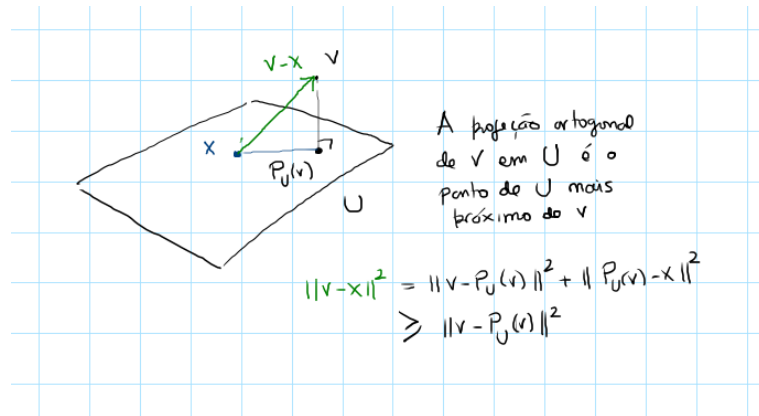 V-X V
X
P_U(v)
U
A projeção ortogonal
de V em U é o
ponto de U mais
próximo de v
||V-X||² = ||V-P_U(v)||² + ||P_U(v)-X||²
≥ ||V-P_U(v)||²